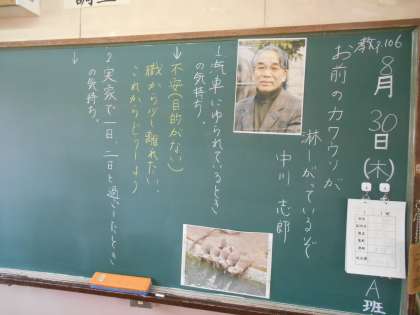 教p.106
8月30日(木)
お前のカワウソが
淋しがっているぞ
中川 志郎
1 汽車にゆられているとき
の気持ち。
↓
不安(目的がない)
職から少し離れたい。
これからどうしよう
2 実家で一日、二日と過ごしたとき
の気持ち。
↓
A班